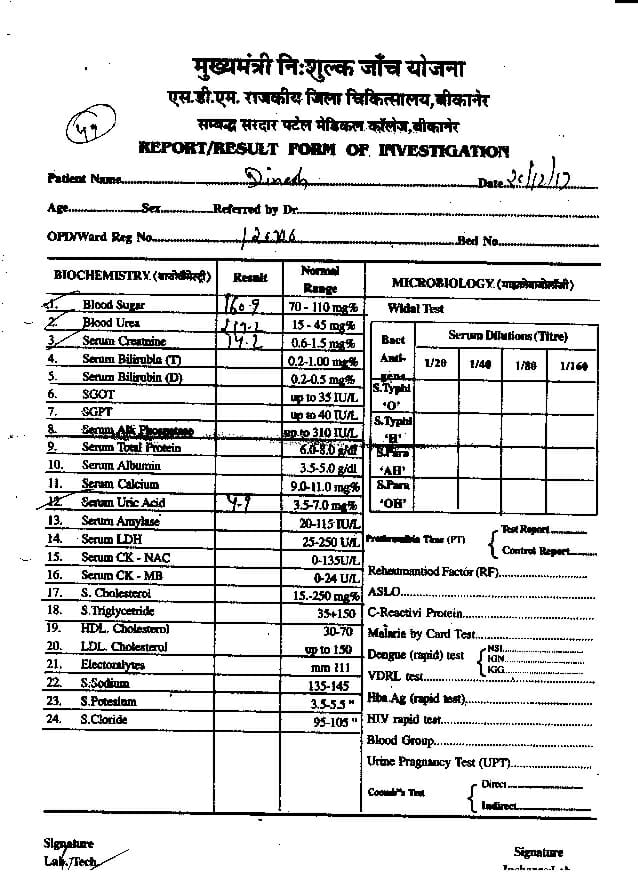 मुख्यमंत्री निःशुल्क जाँच योजना
एस.डी.एम. राजकीय जिला चिकित्सालय,बीकानेर
सम्बद्ध सरदार पटेल मेडिकल कॉलेज,बीकानेर
REPORT/RESULT FORM OF INVESTIGATION
Patient Name Dinesh Date
Age Sex Referred by Dr.
OPD/Ward Reg No. Bed No.
BIOCHEMISTRY Result Normal Range
1. Blood Sugar 160.9 70 - 110 mg%
2. Blood Urea 15 - 45 mg%
3. Serum Creatnine 14.2 0.6-1.5 mg%
4. Serum Bilirubin (T) 0.2-1.00 mg%
5. Serum Bilirubin (D) 0.2-0.5 mg%
6. SGOT up to 35 IU/L
7. SGPT up to 40 IU/L
8. Serum Alk Phospatase up to 310 IU/L
9. Serum Total Protein 6.0-8.0 g/dl
10. Serum Albumin 3.5-5.0 g/dl
11. Seram Calcium 9.0-11.0 mg%
12. Serum Uric Acid 3.5-7.0 mg%
13. Serum Amylase 20-115 IU/L
14. Serum LDH 25-250 U/L
15. Serum CK - NAC 0-135U/L
16. Serum CK - MB 0-24 U/L
17. S. Cholesterol 15.-250 mg%
18. S.Triglycetride 35+150
19. HDL. Cholesterol 30-70
20. LDL. Cholesterol up to 150
21. Electoralytes mm 111
22. S.Sodium 135-145
23. S.Potesium 3.5-5.5 "
24. S.Cloride 95-105 "
MICROBIOLOGY.
Widal Test
Bact Anti- gens Serum Dilutions (Titre)
1/20 1/40 1/80 1/160
S.Typhi
'O'
S.Typhi
'H'
S.Para
'AH'
S.Para
'OH'
Prothrombin Time (PT) { Test Report
Control Report
Reheumantiod Factor (RF)
ASLO
C-Reactivi Protein
Malaria by Card Test
Dengue (rapid) test { NSI
IGN
IGG
VDRL test
Hba Ag (rapid test)
HIV rapid test
Blood Group
Urine Pragnancy Test (UPT)
Coomb"s Test { Direct
Indirect
Signature
Lab./Tech.
Signature